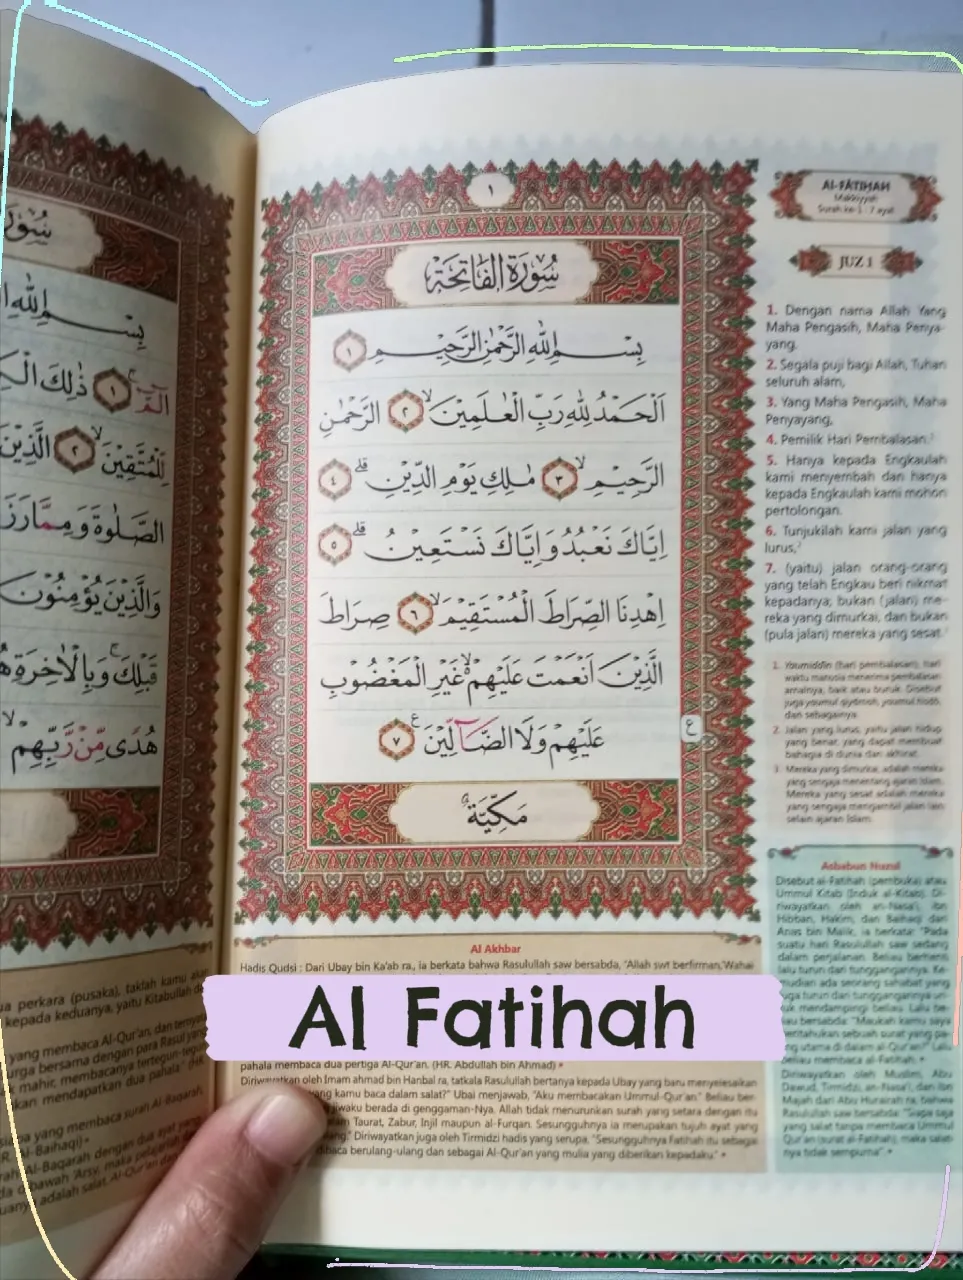 ١
سُوْرَةُ الْفَاتِحَةِ
بِسْمِ اللّٰهِ الرَّحْمٰنِ الرَّحِيْمِ ١
اَلْحَمْدُ لِلّٰهِ رَبِّ الْعٰلَمِيْنَۙ ٢ الرَّحْمٰنِ
الرَّحِيْمِۙ ٣ مٰلِكِ يَوْمِ الدِّيْنِۗ ٤
اِيَّاكَ نَعْبُدُ وَاِيَّاكَ نَسْتَعِيْنُۗ ٥
اِهْدِنَا الصِّرَاطَ الْمُسْتَقِيْمَۙ ٦ صِرَاطَ
الَّذِيْنَ اَنْعَمْتَ عَلَيْهِمْ ەۙ غَيْرِ الْمَغْضُوْبِ
عَلَيْهِمْ وَلَا الضَّاۤلِّيْنَ ࣖ ٧
ع
مَكِّيَّة
AL-FĀTIḤAH
Makkiyyah
Surah ke-1 : 7 ayat
JUZ 1
1. Dengan nama Allah Yang
Maha Pengasih, Maha Penya-
yang.
2. Segala puji bagi Allah, Tuhan
seluruh alam,
3. Yang Maha Pengasih, Maha
Penyayang,
4. Pemilik Hari Pembalasan.¹
5. Hanya kepada Engkaulah
kami menyembah dan hanya
kepada Engkaulah kami mohon
pertolongan.
6. Tunjukilah kami jalan yang
lurus,²
7. (yaitu) jalan orang-orang
yang telah Engkau beri nikmat
kepadanya; bukan (jalan) me-
reka yang dimurkai, dan bukan
(pula jalan) mereka yang sesat.³
1. Yaumiddīn (hari pembalasan), hari
waktu manusia menerima pembalasan
amalnya, baik atau buruk. Disebut
juga yaumul qiyāmah, yaumul hisāb,
dan sebagainya.
2. Jalan yang lurus, yaitu jalan hidup
yang benar, yang dapat membuat
bahagia di dunia dan akhirat.
3. Mereka yang dimurkai, adalah mereka
yang sengaja menentang ajaran Islam.
Mereka yang sesat adalah mereka
yang sengaja mengambil jalan lain
selain ajaran Islam.
Asbabun Nuzul
Disebut al-Fatihah (pembuka) atau
Ummul Kitab (Induk al-Kitab). Di-
riwayatkan oleh an-Nasa'i, Ibn
Hibban, Hakim, dan Baihaqi dari
Anas bin Malik, ia berkata: "Pada
suatu hari Rasulullah saw sedang
dalam perjalanan. Beliau berhenti
lalu turun dari tunggangannya. Ke-
mudian ada seorang sahabat yang
juga turun dari tunggangannya un-
tuk mendampingi beliau. Lalu be-
liau bersabda: "Maukah kamu saya
beritahukan sebuah surat yang pa-
ling utama di dalam al-Qur'an?" Lalu
beliau membaca al-Fatihah. •
Diriwayatkan oleh Muslim, Abu
Dawud, Tirmidzi, an-Nasa'i, dan Ibn
Majah dari Abu Hurairah ra, bahwa
Rasulullah saw bersabda: "Siapa saja
yang salat tanpa membaca Ummul
Qur'an (surat al-Fatihah), maka salat-
nya tidak sempurna". •
Al Akhbar
Hadis Qudsi : Dari Ubay bin Ka'ab ra., ia berkata bahwa Rasulullah saw bersabda, "Allah swt berfirman,'Wahai
Al Fatihah
pahala membaca dua pertiga Al-Qur'an. (HR. Abdullah bin Ahmad) •
Diriwayatkan oleh Imam ahmad bin Hanbal ra, tatkala Rasulullah bertanya kepada Ubay yang baru menyelesaikan
yang kamu baca dalam salat?" Ubai menjawab, "Aku membacakan Ummul-Qur'an." Beliau ber-
jiwaku berada di genggaman-Nya. Allah tidak menurunkan surah yang setara dengan itu
Taurat, Zabur, Injil maupun al-Furqan. Sesungguhnya ia merupakan tujuh ayat yang
Diriwayatkan juga oleh Tirmidzi hadis yang serupa, "Sesungguhnya fatihah itu sebagai
dibaca berulang-ulang dan sebagai Al-Qur'an yang mulia yang diberikan kepadaku." •
بِسْمِ اللّٰهِ
الۤمّۤ ۚ ١ ذٰلِكَ
لِّلْمُتَّقِيْنَۙ ٢ الَّذِيْنَ
الصَّلٰوةَ وَمِمَّا
وَالَّذِيْنَ يُؤْمِنُوْنَ
قَبْلِكَۚ وَبِالْاٰخِرَةِ
هُدًى مِّنْ رَّبِّهِمْ
perkara (pusaka), taklah kamu akan
kepada keduanya, yaitu Kitabullah
yang membaca Al-Qur'an, dan
bersama dengan para Rasul yang
mahir, membacanya tertegun-tegun
mendapatkan dua pahala."
yang membaca surah Al-Baqarah,
Al-Baihaqi) •
Al-Baqarah dengan dua ayat yang
dibawah 'Arsy, maka
adalah salat, Al-Qur'an dan